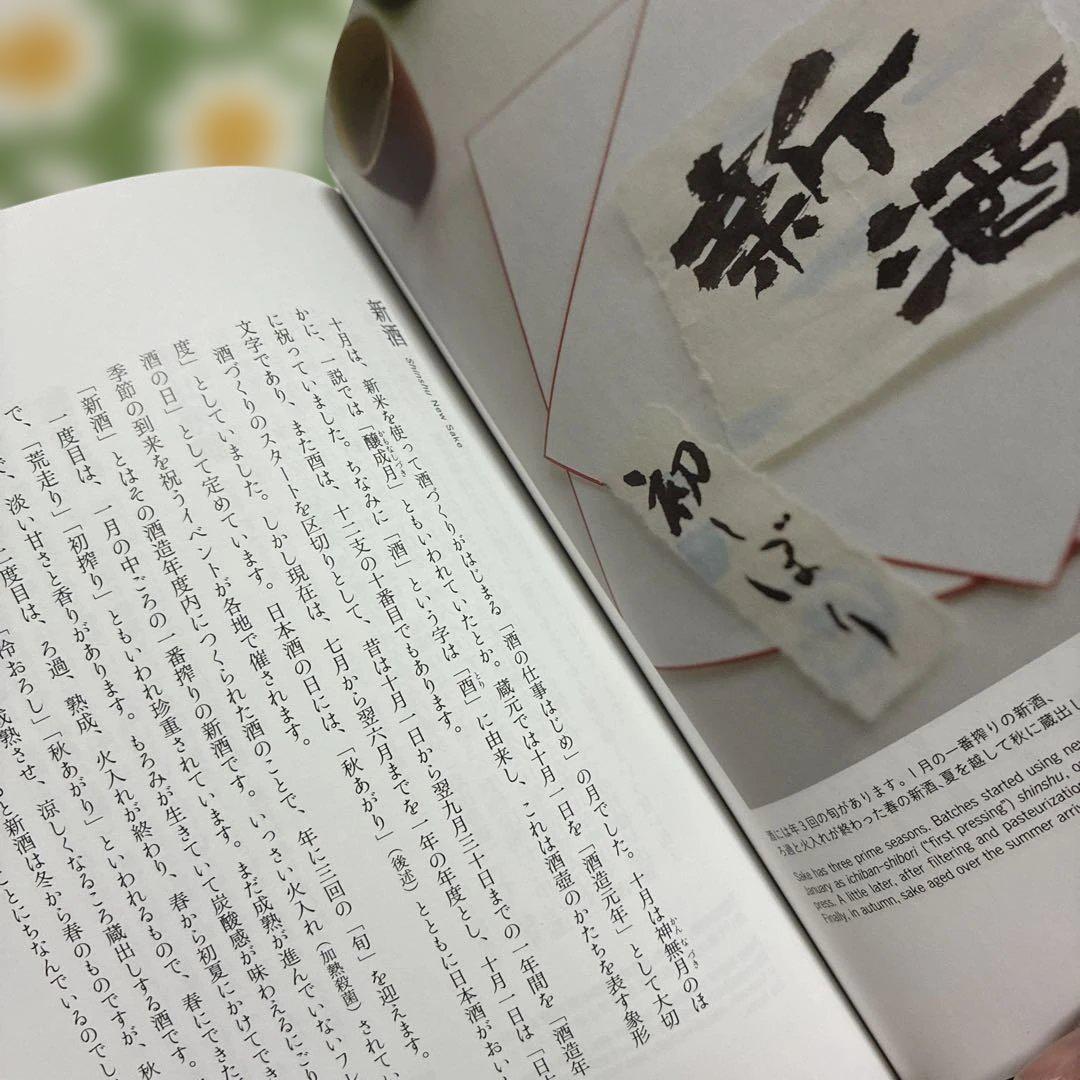 新酒
初しぼり
酒には年3回の旬があります。1月の一番搾りの新酒、
ろ過と火入れが終わった春の新酒、夏を越して秋に蔵出し
Sake has three prime seasons. Batches started using new
January as ichiban-shibori (“first pressing”) shinshu, or
press. A little later, after filtering and pasteurization
Finally, in autumn, sake aged over the summer arriv
新酒 Shinshu New Sake
十月は、新米を使って酒づくりがはじまる「酒の仕事はじめ」の月でした。十月は神無月のほ
かに、一説では「醸成月」ともいわれていたとか。蔵元では十月一日を「酒造元年」として大切
に祝っていました。ちなみに「酒」という字は「酉」に由来し、これは酒壺のかたちを表す象形
文字であり、また酉は、十二支の十番目でもあります。
酒づくりのスタートを区切りとして、昔は十月一日から翌九月三十日までの一年間を「酒造年
度」としていました。しかし現在は、七月から翌六月までを一年の年度とし、十月一日は「日本
酒の日」として定めています。日本酒の日には、「秋あがり」(後述)とともに日本酒がおい
季節の到来を祝うイベントが各地で催されます。
「新酒」とはその酒造年度内につくられた酒のことで、年に三回の「旬」を迎えます。
一度目は、一月の中ごろの一番搾りの新酒です。いっさい火入れ(加熱殺菌)されてい
「荒走り」「初搾り」ともいわれ珍重されています。まだ成熟が進んでいないフレ
で、淡い甘さと香りがあります。もろみが生きていて炭酸感が味わえるにごり
二度目は、ろ過、熟成、火入れが終わり、春から初夏にかけてでき
「冷おろし」「秋あがり」といわれるもので、春にできた
成熟させ、涼しくなるころ蔵出しする酒です。
と新酒は冬から春のものですが、秋
ことにちなんでいるのでし